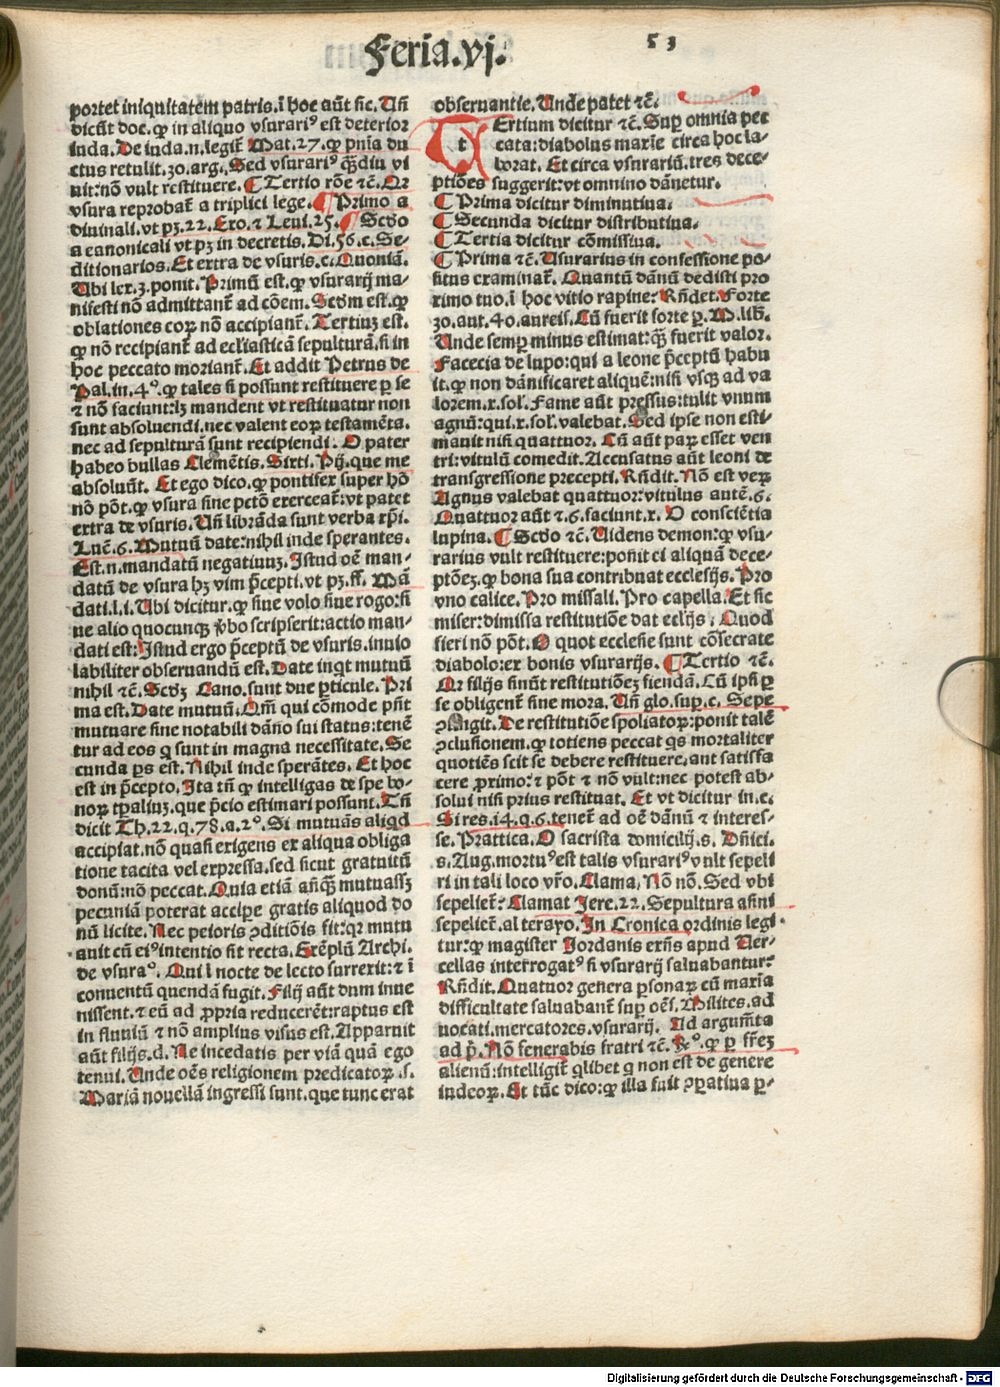 Feria.vj.
53
portet iniquitatem patris.ĩ hoc aũt sic. Uñ
dicũt doc. ꝙ in aliquo vsurariꝰ est deterior
iuda. De iuda.n.legit᷑ Mat.27.ꝙ pñia du
ctus retulit.30.arg. Sed vsurariꝰ q̃ʒdiu vi
uit:nõ vult restituere. ¶ Tertio rõe ⁊c̃. Qꝛ
vsura reprobat᷑ a triplici lege. ¶ Primo a
diuinali.vt pʒ.22. Exo.⁊ Leui.25. ¶ Scdo
a canonicali vt pʒ in decretis. Di.56.c. Se-
ditionarios. Et extra de vsuris.c. Quoniã.
Ubi lex.3.ponit. Primũ est.ꝙ vsurarij ma-
nifesti nõ admittant᷑ ad cõem. Scdm est.ꝙ
oblationes eoꝝ nõ accipiant᷑. Tertiuʒ est.
ꝙ nõ recipiant᷑ ad ecl̃iasticã sepulturã.si in
hoc peccato moriant᷑. Et addit Petrus de
Pal.in.4°.ꝙ tales si possunt restituere ꝑ se
⁊ nõ faciunt:lʒ mandent vt restituatur non
sunt absoluendi.nec valent eoꝝ testamẽta.
nec ad sepulturã sunt recipiendi. O pater
habeo bullas Clemẽtis. Sixti. Pij.que me
absoluũt. Et ego dico.ꝙ pontifex super hõ
nõ põt.ꝙ vsura sine pctõ exerceat᷑:vt patet
extra de vsuris. Uñ librãda sunt verba xp̃i.
Luc̃.6. Mutuũ date:nihil inde sperantes.
Est.n.mandatũ negatiuuʒ. Istud oẽ man-
datũ de vsura hʒ vim p̃cepti.vt pʒ.ff. Mã
dati.l.i. Ubi dicitur.ꝙ siue volo siue rogo:si
ue alio quocunqʒ ꝟbo scripserit:actio man-
dati est: Istud ergo p̃ceptũ de vsuris.inuio
labiliter obseruandũ est. Date inqt mutuũ
nihil ⁊c̃. Scdʒ Cano.sunt due ꝑticule. Pri
ma est. Date mutuũ. Qm̃ qui cõmode pñt
mutuare sine notabili dãno sui status:tenẽ
tur ad eos q sunt in magna necessitate. Se
cunda ꝑs est. Nihil inde sperãtes. Et hoc
est in p̃cepto. Ita tñ ꝙ intelligas de spe bo-
noꝝ tp̃aliuʒ.que p̃cio estimari possunt. Tñ
dicit Th.22.q.78.a.2°. Si mutuãs aliqd
accipiat.nõ quasi exigens ex aliqua obliga
tione tacita vel expressa.sed sicut gratuitũ
donũ:nõ peccat. Quia etiã añq̃ʒ mutuassʒ
pecuniã poterat accipe gratis aliquod do
nũ licite. Nec peioris ꝯditiõis fit:qꝛ mutu
auit cũ eiꝰ intentio sit recta. Exẽplũ Archi.
de vsura°. Qui ĩ nocte de lecto surrexit:⁊ ĩ
conuentũ quendã fugit. Filij aũt dum inue
nissent.⁊ eũ ad ꝓpria reducerẽt:raptus est
in fluuiũ ⁊ nõ amplius visus est. Apparuit
aũt filijs.d. Ne incedatis per viã quã ego
tenui. Unde oẽs religionem predicatoꝝ .s.
Mariã nouellã ingressi sunt.que tunc erat
obseruantie. Unde patet ⁊c̃.
Tertium dicitur ⁊c̃. Suꝑ omnia pec
cata:diabolus maxĩe circa hoc la-
borat. Et circa vsurariũ.tres dece-
ptiões suggerit:vt omnino dãnetur.
¶ Prima dicitur diminutiua.
¶ Secunda dicitur distributiua.
¶ Tertia dicitur cõmissiua.
¶ Prima ⁊c̃. Usurarius in confessione po-
situs examinat᷑. Quantũ dãnũ dedisti pro
ximo tuo.ĩ hoc vitio rapine: Rñdet. Forte
30.aut.40.aureis. Cũ fuerit forte ꝑ. M.lib̃.
Unde semꝑ minus estimat:q̃ʒ fuerit valor.
Facecia de lupo:qui a leone p̃ceptũ habu
it.ꝙ non dãnificaret aliquẽ:nisi vsqʒ ad va
lorem.x.sol̃. Fame aũt pressus:tulit vnum
agnũ:qui.x.sol̃.valebat. Sed ipse non esti-
mauit nisi quattuor. Cũ aũt paꝝ esset ven
tri:vitulũ comedit. Accusatus aũt leoni de
transgressione precepti. Rñdit. Nõ est veꝝ
Agnus valebat quattuor:vitulus autẽ.6.
Quattuor aũt ⁊.6.faciunt.x. O consciẽtia
lupina. ¶ Scdo ⁊c̃. Uidens demon:ꝙ vsu-
rarius vult restituere:ponit ei aliquã dece-
ptõeʒ.ꝙ bona sua contribuat ecclesijs. Pro
vno calice. Pro missali. Pro capella. Et sic
miser:dimissa restitutiõe dat ecl̃ijs. Quod
fieri nõ põt. O quot ecclesie sunt cõsecrate
diabolo:ex bonis vsurarijs. ¶ Tertio ⁊c̃.
Qꝛ filijs sinũt restitutiõeʒ fiendã. Cũ ipsi ꝑ
se obligent᷑ sine mora. Uñ glo.suꝑ.c. Sepe
ꝯtingit. De restitutiõe spoliatoꝝ:ponit talẽ
ꝯclusionem.ꝙ totiens peccat qs mortaliter
quotiẽs scit se debere restituere.aut satisfa
cere ꝓximo:⁊ põt ⁊ nõ vult:nec potest ab-
solui nisi prius restituat. Et vt dicitur in.c.
Si res.14.q.6.tenet᷑ ad oẽ dãnũ ⁊ interes-
se. Prattica. O sacrista domicilij.s. Dñici.
s. Aug.mortuꝰ est talis vsurariꝰ vult sepeli
ri in tali loco vr̃o. Clama. Nõ nõ. Sed vbi
sepeliet᷑? Clamat Jere.22. Sepultura asini
sepeliet᷑.al terazo. In Cronica ordinis legi
tur:ꝙ magister Iordanis exñs apud Uer-
cellas interrogatꝰ si vsurarij saluabantur?
Rñdit. Quatuor genera ꝑsonaꝝ cũ maxĩa
difficultate saluabant᷑ suꝑ oẽs. Milites.ad
uocati.mercatores.vsurarij. Ad argum̃ta
ad p̃. Nõ fenerabis fratri ⁊c̃. ℞°.ꝙ ꝑ fr̃eʒ
alienũ:intelligit᷑ qlibet q non est de genere
iudeoꝝ. Et tũc dico:ꝙ illa fuit ꝯꝑatiua ꝑ-
Digitalisierung gefördert durch die Deutsche Forschungsgemeinschaft - DFG